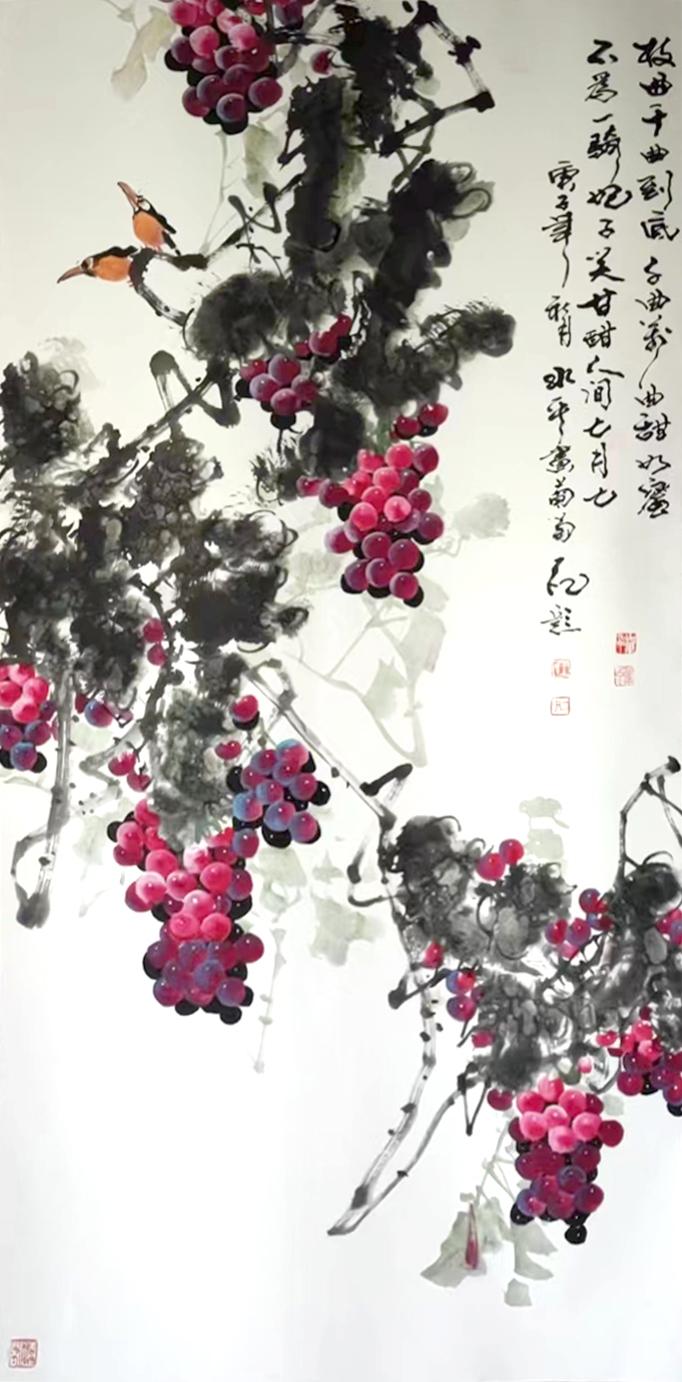 枝曲干曲到底 千曲万曲甜如蜜
不为一骑妃子笑 甘甜人间七月七
庚子年 秋月 永平画葡萄 并题